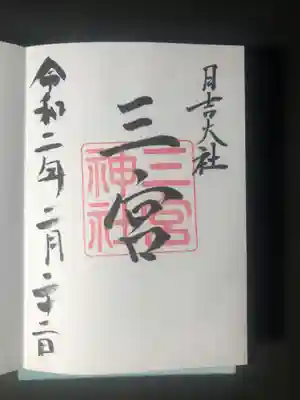 日吉大社
三宮
三宮神社
令和二年二月二十二日